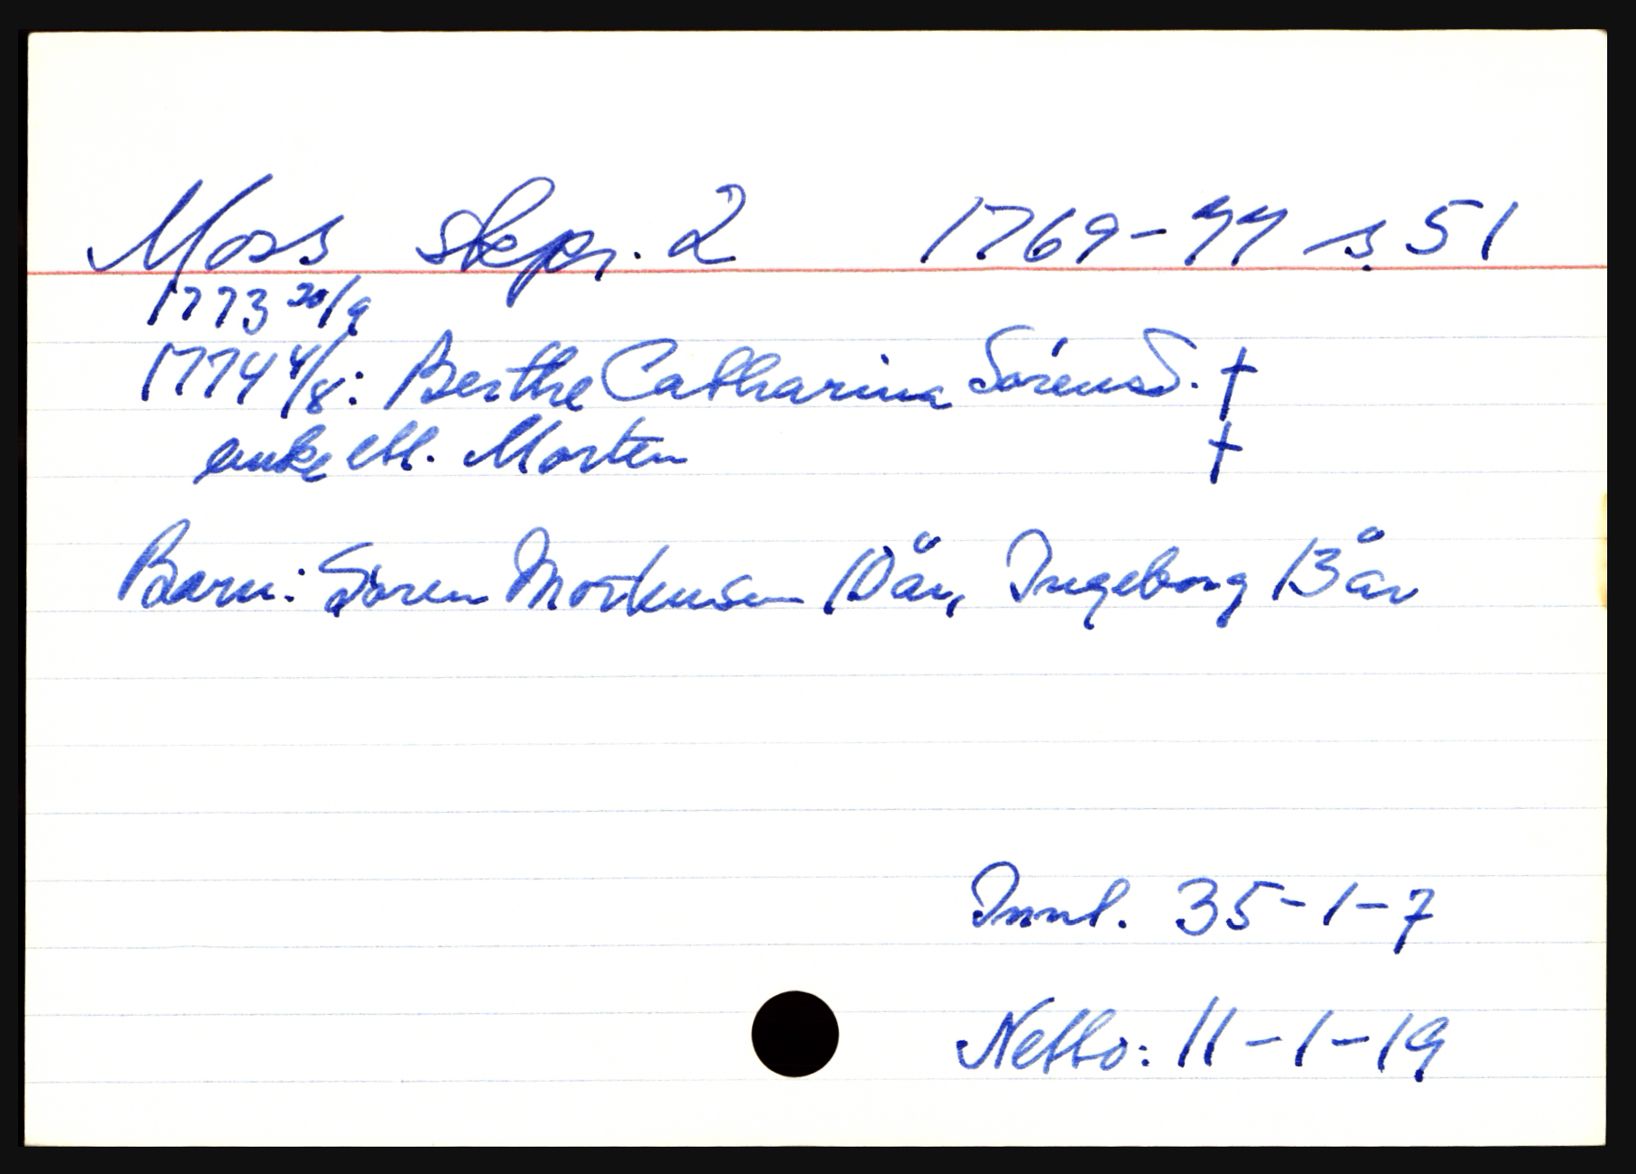 Moss skpr. 2 1769-77 s 51
1773 20/9
1774 4/8: Berthe Catharina SörensD. †
enke ett. Morten †
Barn: Sören Mortensen 10 år, Ingeborg 13 år
Innt. 35-1-7
Netto: 11-1-19